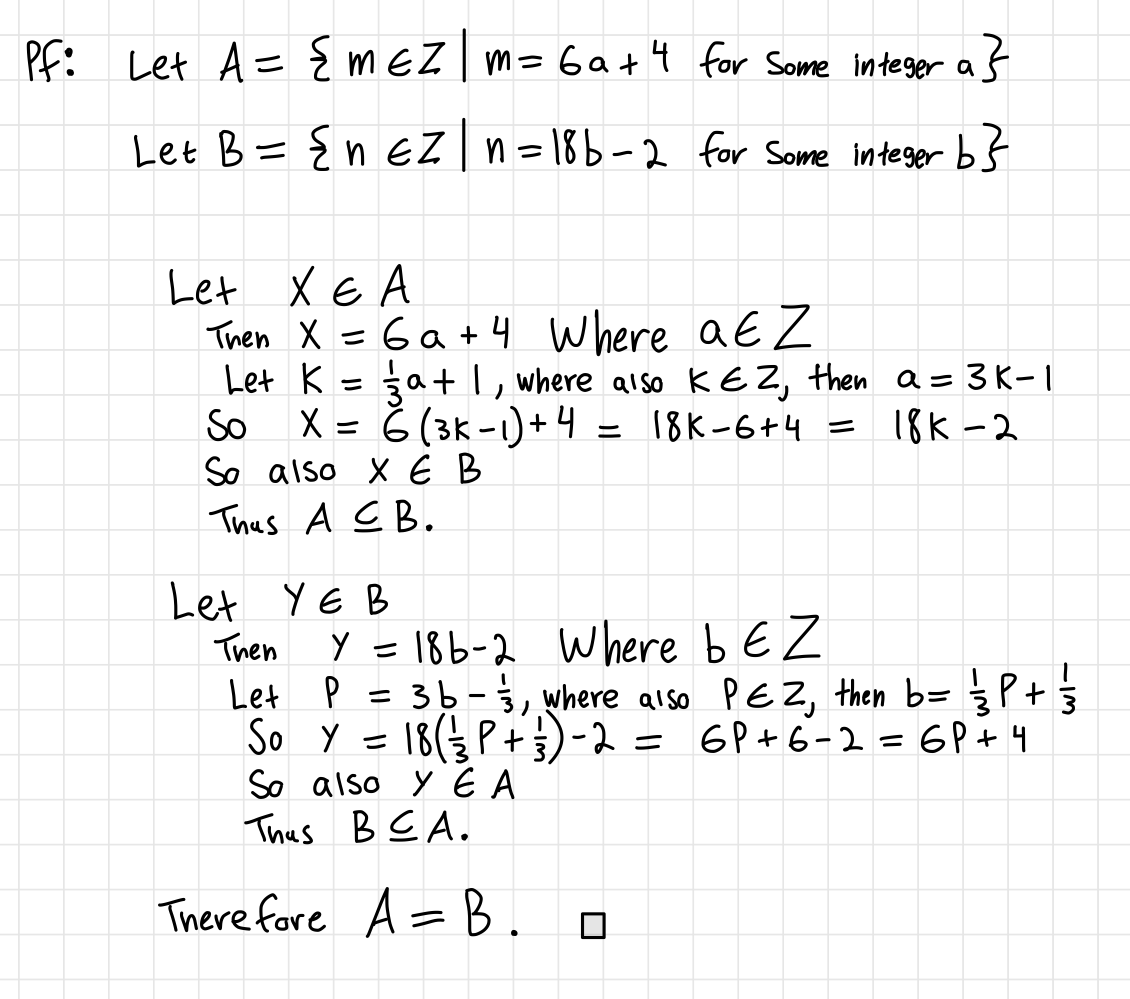 Pf: Let A = { m ∈ Z | m = 6a + 4 for some integer a}
Let B = { n ∈ Z | n = 18b - 2 for some integer b}
Let X ∈ A
Then X = 6a + 4 Where a ∈ Z
Let K = 1/3 a + 1, where also K ∈ Z, then a = 3K - 1
So X = 6(3K - 1) + 4 = 18K - 6 + 4 = 18K - 2
So also X ∈ B
Thus A ⊆ B.
Let Y ∈ B
Then Y = 18b - 2 Where b ∈ Z
Let P = 3b - 1/3, where also P ∈ Z, then b = 1/3 P + 1/3
So Y = 18(1/3 P + 1/3) - 2 = 6P + 6 - 2 = 6P + 4
So also Y ∈ A
Thus B ⊆ A.
Therefore A = B. □